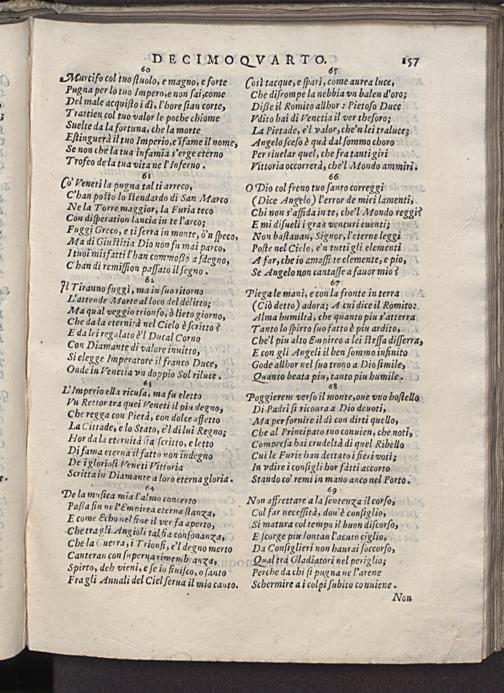 DECIMOQVARTO. 157
60
Murcifo col tuo ſtuolo, e magno, e forte
Pugna per lo tuo Impero, e non ſai, come
Del male acquiſto i dì, l'hore ſian corte,
Trattien col tuo valor le poche chiome
Suelte da la fortuna, che la morte
Eſtinguerà il tuo Imperio, e iſame il nome,
Se non che la tua infamia s'erge eterno
Trofeo de la tua vita ne l'Inferno.
61
Co' Veneti la pugna tal ti arreco,
C'han poſto lo ſtendardo di San Marco
Ne la Torre maggior, la Furia teco
Con diſperation lancia in te l'arco;
Fuggi Greco, e ti ſerra in monte, ò n ſpeco,
Ma di Giuſtitia Dio non fu mai parco,
I tuoi misfatti l'han commoſſo a ſdegno,
C'han di remiſſion paſſato il ſegno.
62
Il Tiranno fuggì, ma in ſuo ritorno
L'attende Morte al loco del delitto;
Ma qual veggio trionfo, ò lieto giorno,
Che da la eternità nel Cielo è ſcritto?
E da lei regalato è'l Ducal Corno
Con Diamante di valore inuitto,
Si elegge Imperatore il franco Duce,
Onde in Venetia vn doppio Sol riluce.
63
L'Imperio ella ricuſa, ma fu eletto
Vn Rettor tra quei Veneti il più degno,
Che regga con Pietà, con dolce affetto
La Cittade, e lo Stato, e'l di lui Regno;
Hor da la eternità ſia ſcritto, e letto
Di fama eterna il fatto non indegno
De i glorioſi Veneti Vittoria
Scritta in Diamante a loro eterna gloria.
64
De la muſica mia l'almo concerto
Paſſa ſin ne l'Empirea eterna ſtanza,
E come Echo nel fine il ver fa aperto,
Che tra gli Angioli tal ſia conſonanza,
Che la Guerra, i Trionfi, e'l degno merto
Canteran con ſuperna rimembranza,
Spirto, deh vieni, e ſe io finiſco, o ſanto
Fra gli Annali del Ciel ſerua il mio canto.
65
Così tacque, e ſparì, come aurea luce,
Che diſrompe la nebbia vn balen d'oro;
Diſſe il Romito allhor: Pietoſo Duce
Vdito hai di Venetia il ver theſoro;
La Pietade, e'l valor, che'n lei traluce;
Angelo ſceſo è quà dal ſommo choro
Per riuelar quel, che fra tanti giri
Vittoria occorrerà, che'l Mondo ammiri.
66
O Dio col freno tuo ſanto correggi
(Dice Angelo) l'error de miei lamenti,
Chi non s'affida in te, che'l Mondo reggi?
E mi diſueli i gran venturi euenti;
Non baſtauan, Signor, l'eterne leggi
Poſte nel Cielo, e'n tutti gli elementi
A far, che io amaſſi te clemente, e pio,
Se Angelo non cantaſſe a fauor mio?
67
Piega le mani, e con la fronte in terra
(Ciò detto) adora; A cui dice il Romito:
Alma humiltà, che quanto più s'atterra
Tanto lo ſpirto ſuo fatto è più ardito,
Che'l più alto Empireo a lei ſteſſa diſſerra,
E con gli Angeli il ben ſommo infinito
Gode allhor nel ſuo trono a Dio ſimile,
Quanto beata più, tanto più humile.
68
Poggierem verſo il monte, oue vno hoſtello
Di Padri ſi ricoura a Dio deuoti,
Ma per fornire il dì con dirti quello,
Che al Principato tuo conuien, che noti,
Compreſa hai crudeltà di quel Ribello
Cui le Furie han dettato i fieri voti;
In vdire i conſigli hor fatti accorto
Stando co' remi in mano anco nel Porto.
69
Non affrettare a la ſentenza il corſo,
Col far neceſſità, dou'è conſiglio,
Si matura col tempo il buon diſcorſo,
E ſcorge più lontan l'acuto ciglio,
Da Conſiglieri non haurai ſoccorſo,
Qual tra Gladiatori nel periglio;
Perche da chi ſi pugna ne l'arene
Schermire a i colpi ſubito conuiene.
Non